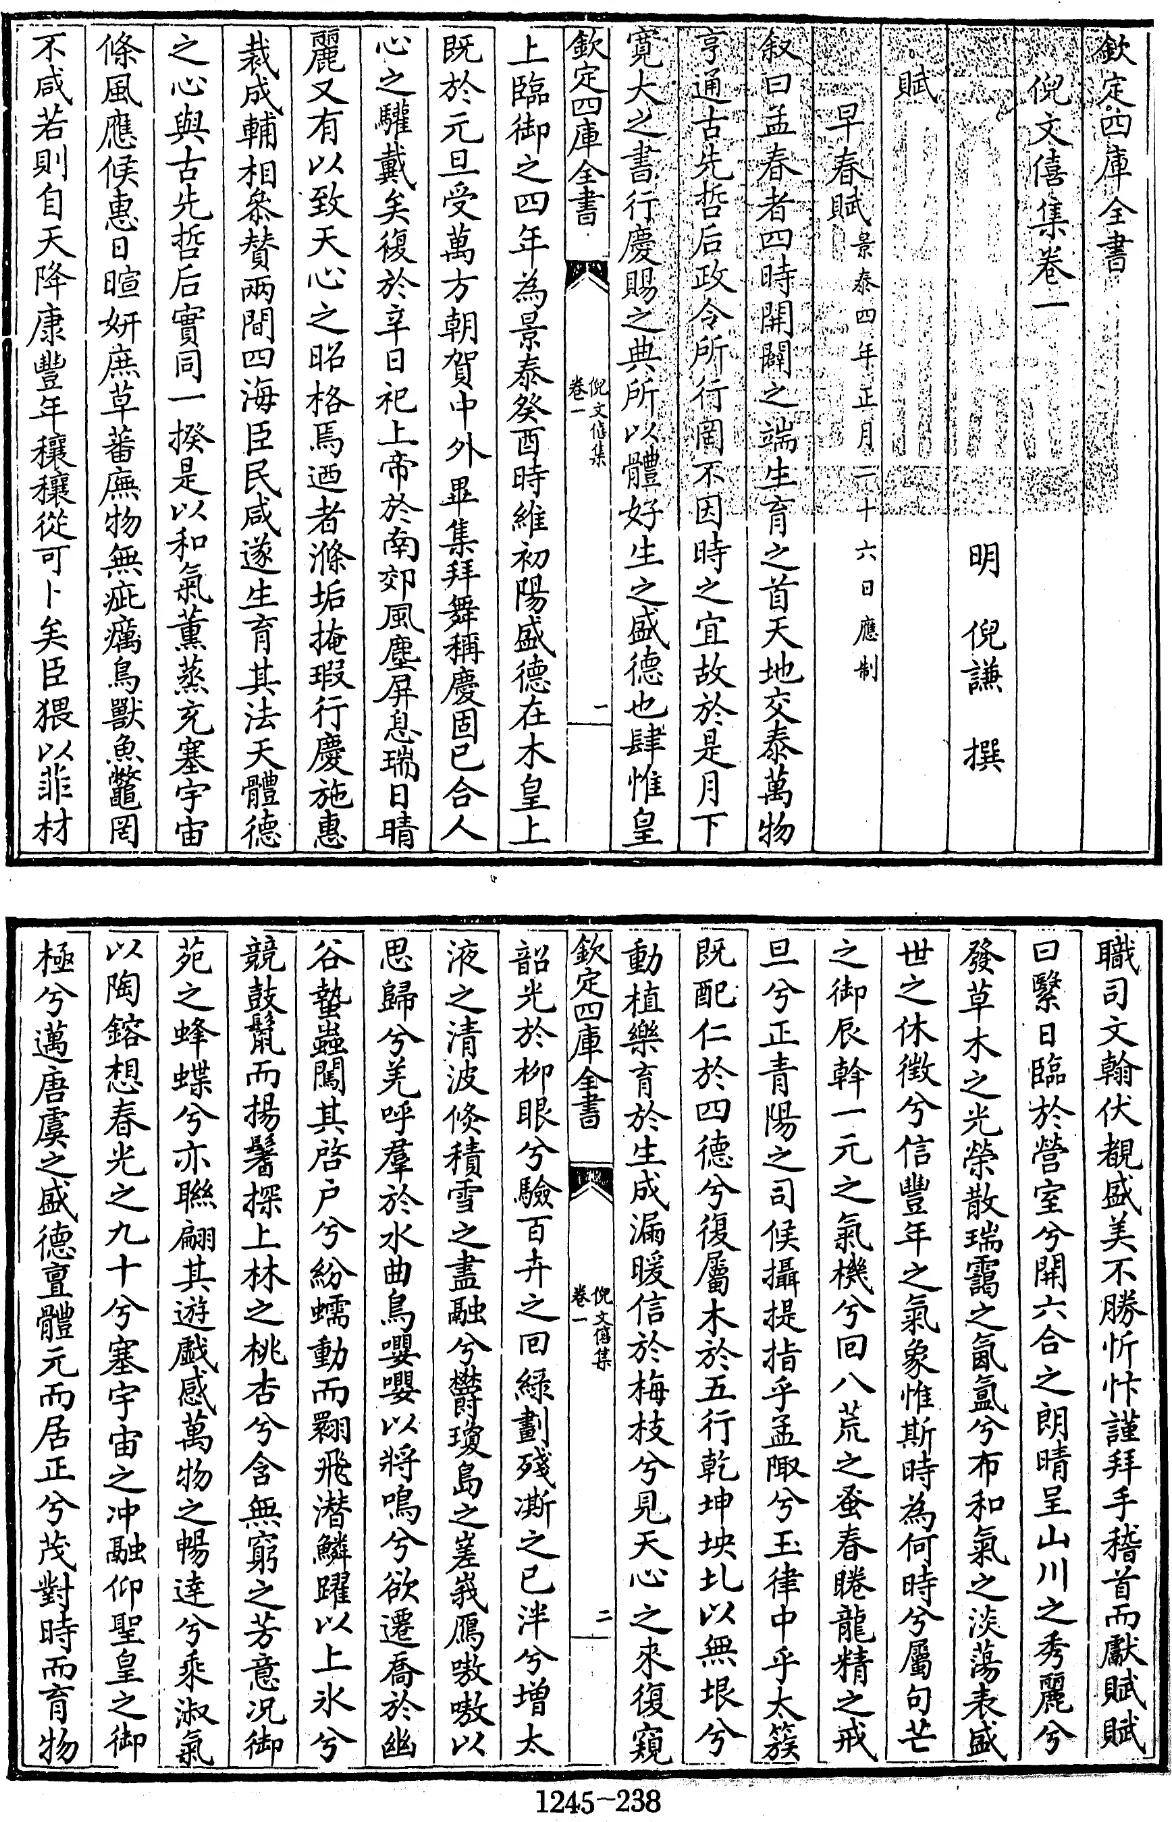 欽定四庫全書
倪文僖集卷一
明 倪謙 撰
賦
早春賦 景泰四年正月二十六日應制
叙曰孟春者四時開闢之端生育之首天地交泰萬物
亨通古先哲后政令所行罔不因時之宜故於是月下
寛大之書行慶賜之典所以體好生之盛德也肆惟皇
欽定四庫全書
倪文僖集
卷一
一
上臨御之四年為景泰癸酉時維初陽盛德在木皇上
既於元旦受萬方朝賀中外畢集拜舞稱慶固已合人
心之驩戴矣復於辛日祀上帝於南郊風塵屏息瑞日晴
麗又有以致天心之昭格焉迺者滌垢掩瑕行慶施惠
裁成輔相叅賛兩間四海臣民咸遂生育其法天體德
之心與古先哲后實同一揆是以和氣薫蒸充塞宇宙
條風應候惠日暄妍庶草蕃廡物無疵癘鳥獸魚鼈罔
不咸若則自天降康豐年穰穰從可卜矣臣猥以菲材
職司文翰伏覩盛美不勝忻忭謹拜手稽首而獻賦賦
曰繄日臨於營室兮開六合之朗晴呈山川之秀麗兮
發草木之光榮散瑞靄之氤氳兮布和氣之淡蕩表盛
世之休徴兮信豐年之氣象惟斯時為何時兮屬句芒
之御辰斡一元之氣機兮回八荒之蚤春睠龍精之戒
旦兮正青陽之司候攝提指乎孟陬兮玉律中乎太簇
既配仁於四德兮復屬木於五行乾坤坱圠以無垠兮
動植樂育於生成漏暖信於梅枝兮見天心之來復窺
欽定四庫全書
倪文僖集
卷一
二
韶光於柳眼兮驗百卉之回緑劃殘澌之已泮兮增太
液之清波倐積雪之盡融兮欝瓊島之嵳峩鴈嗷嗷以
思歸兮羌呼羣於水曲鳥嚶嚶以將鳴兮欲遷喬於幽
谷蟄蟲闖其啓户兮紛蠕動而翾飛潜鱗躍以上氷兮
競鼓鬛而揚鬐探上林之桃杏兮含無窮之芳意况御
苑之蜂蝶兮亦聯翩其遊戲感萬物之暢逹兮乘淑氣
以陶鎔想春光之九十兮塞宇宙之冲融仰聖皇之御
極兮邁唐虞之盛德亶體元而居正兮茂對時而育物
1245-238